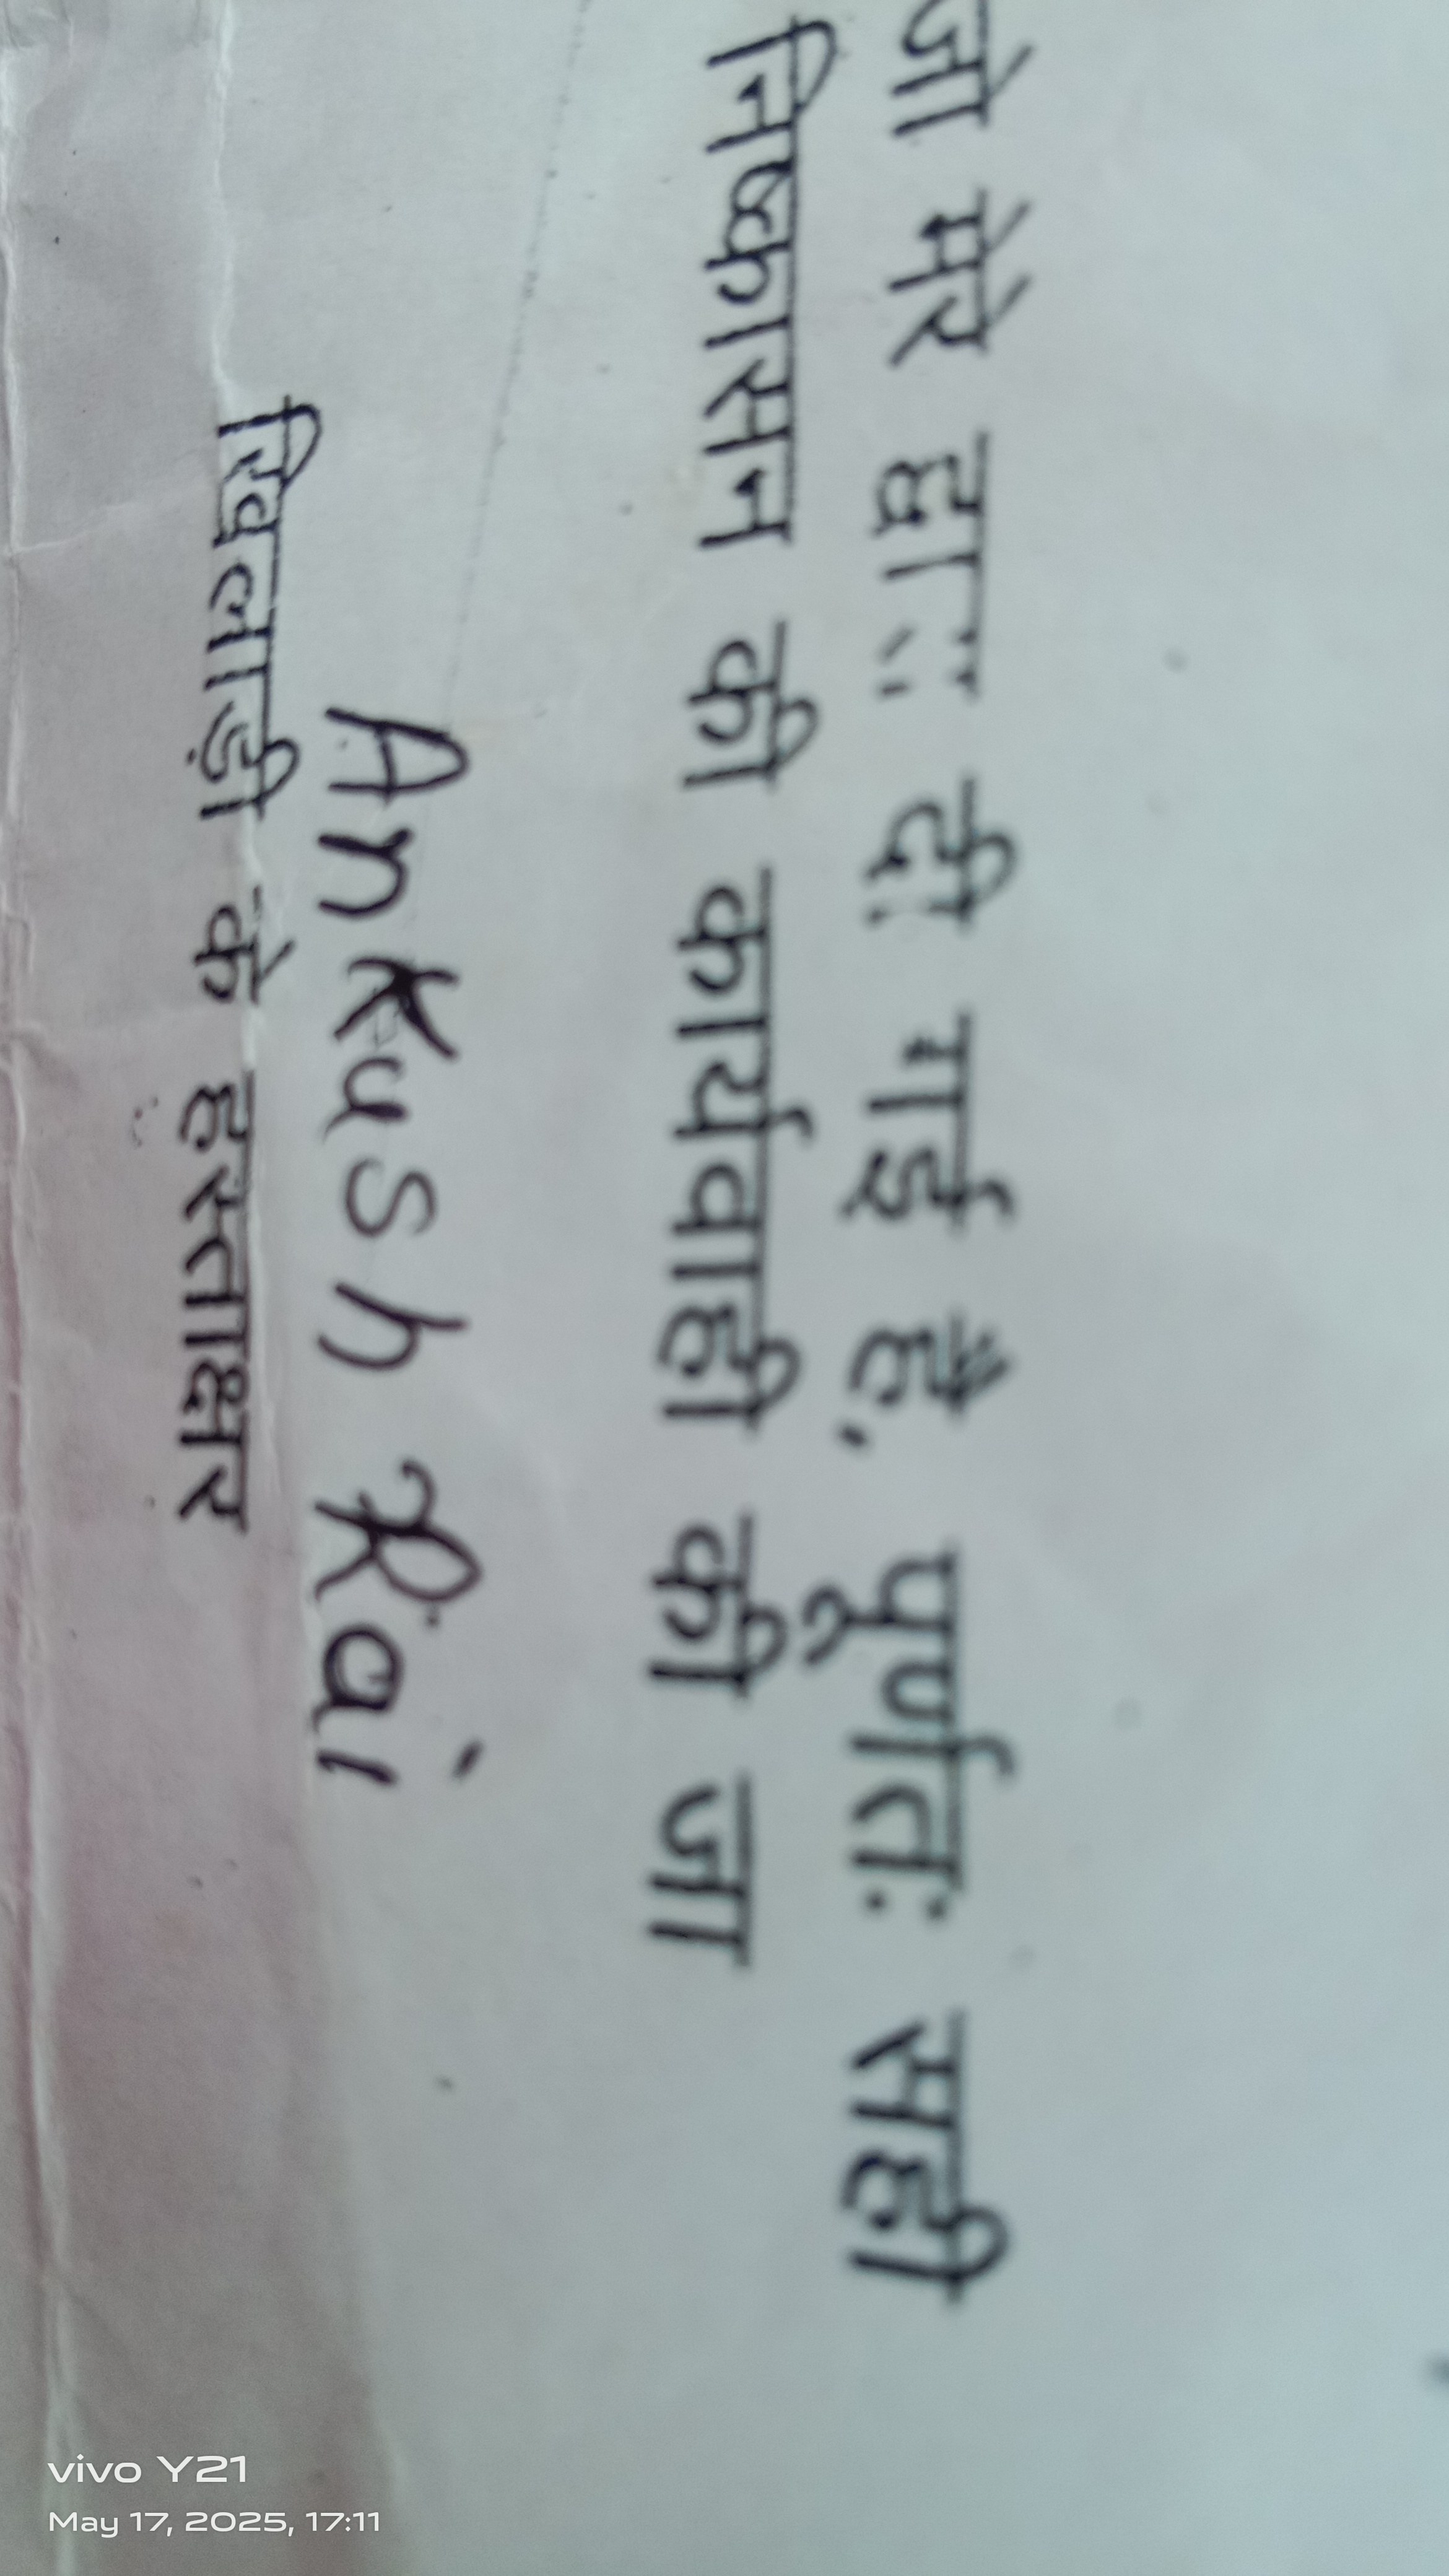 जो मेरे द्वारा दी गई है, पूर्णतः सही
निष्कासन की कार्यवाही की जा
Ankush Rai
खिलाड़ी के हस्ताक्षर
vivo Y21
May 17, 2025, 17:11